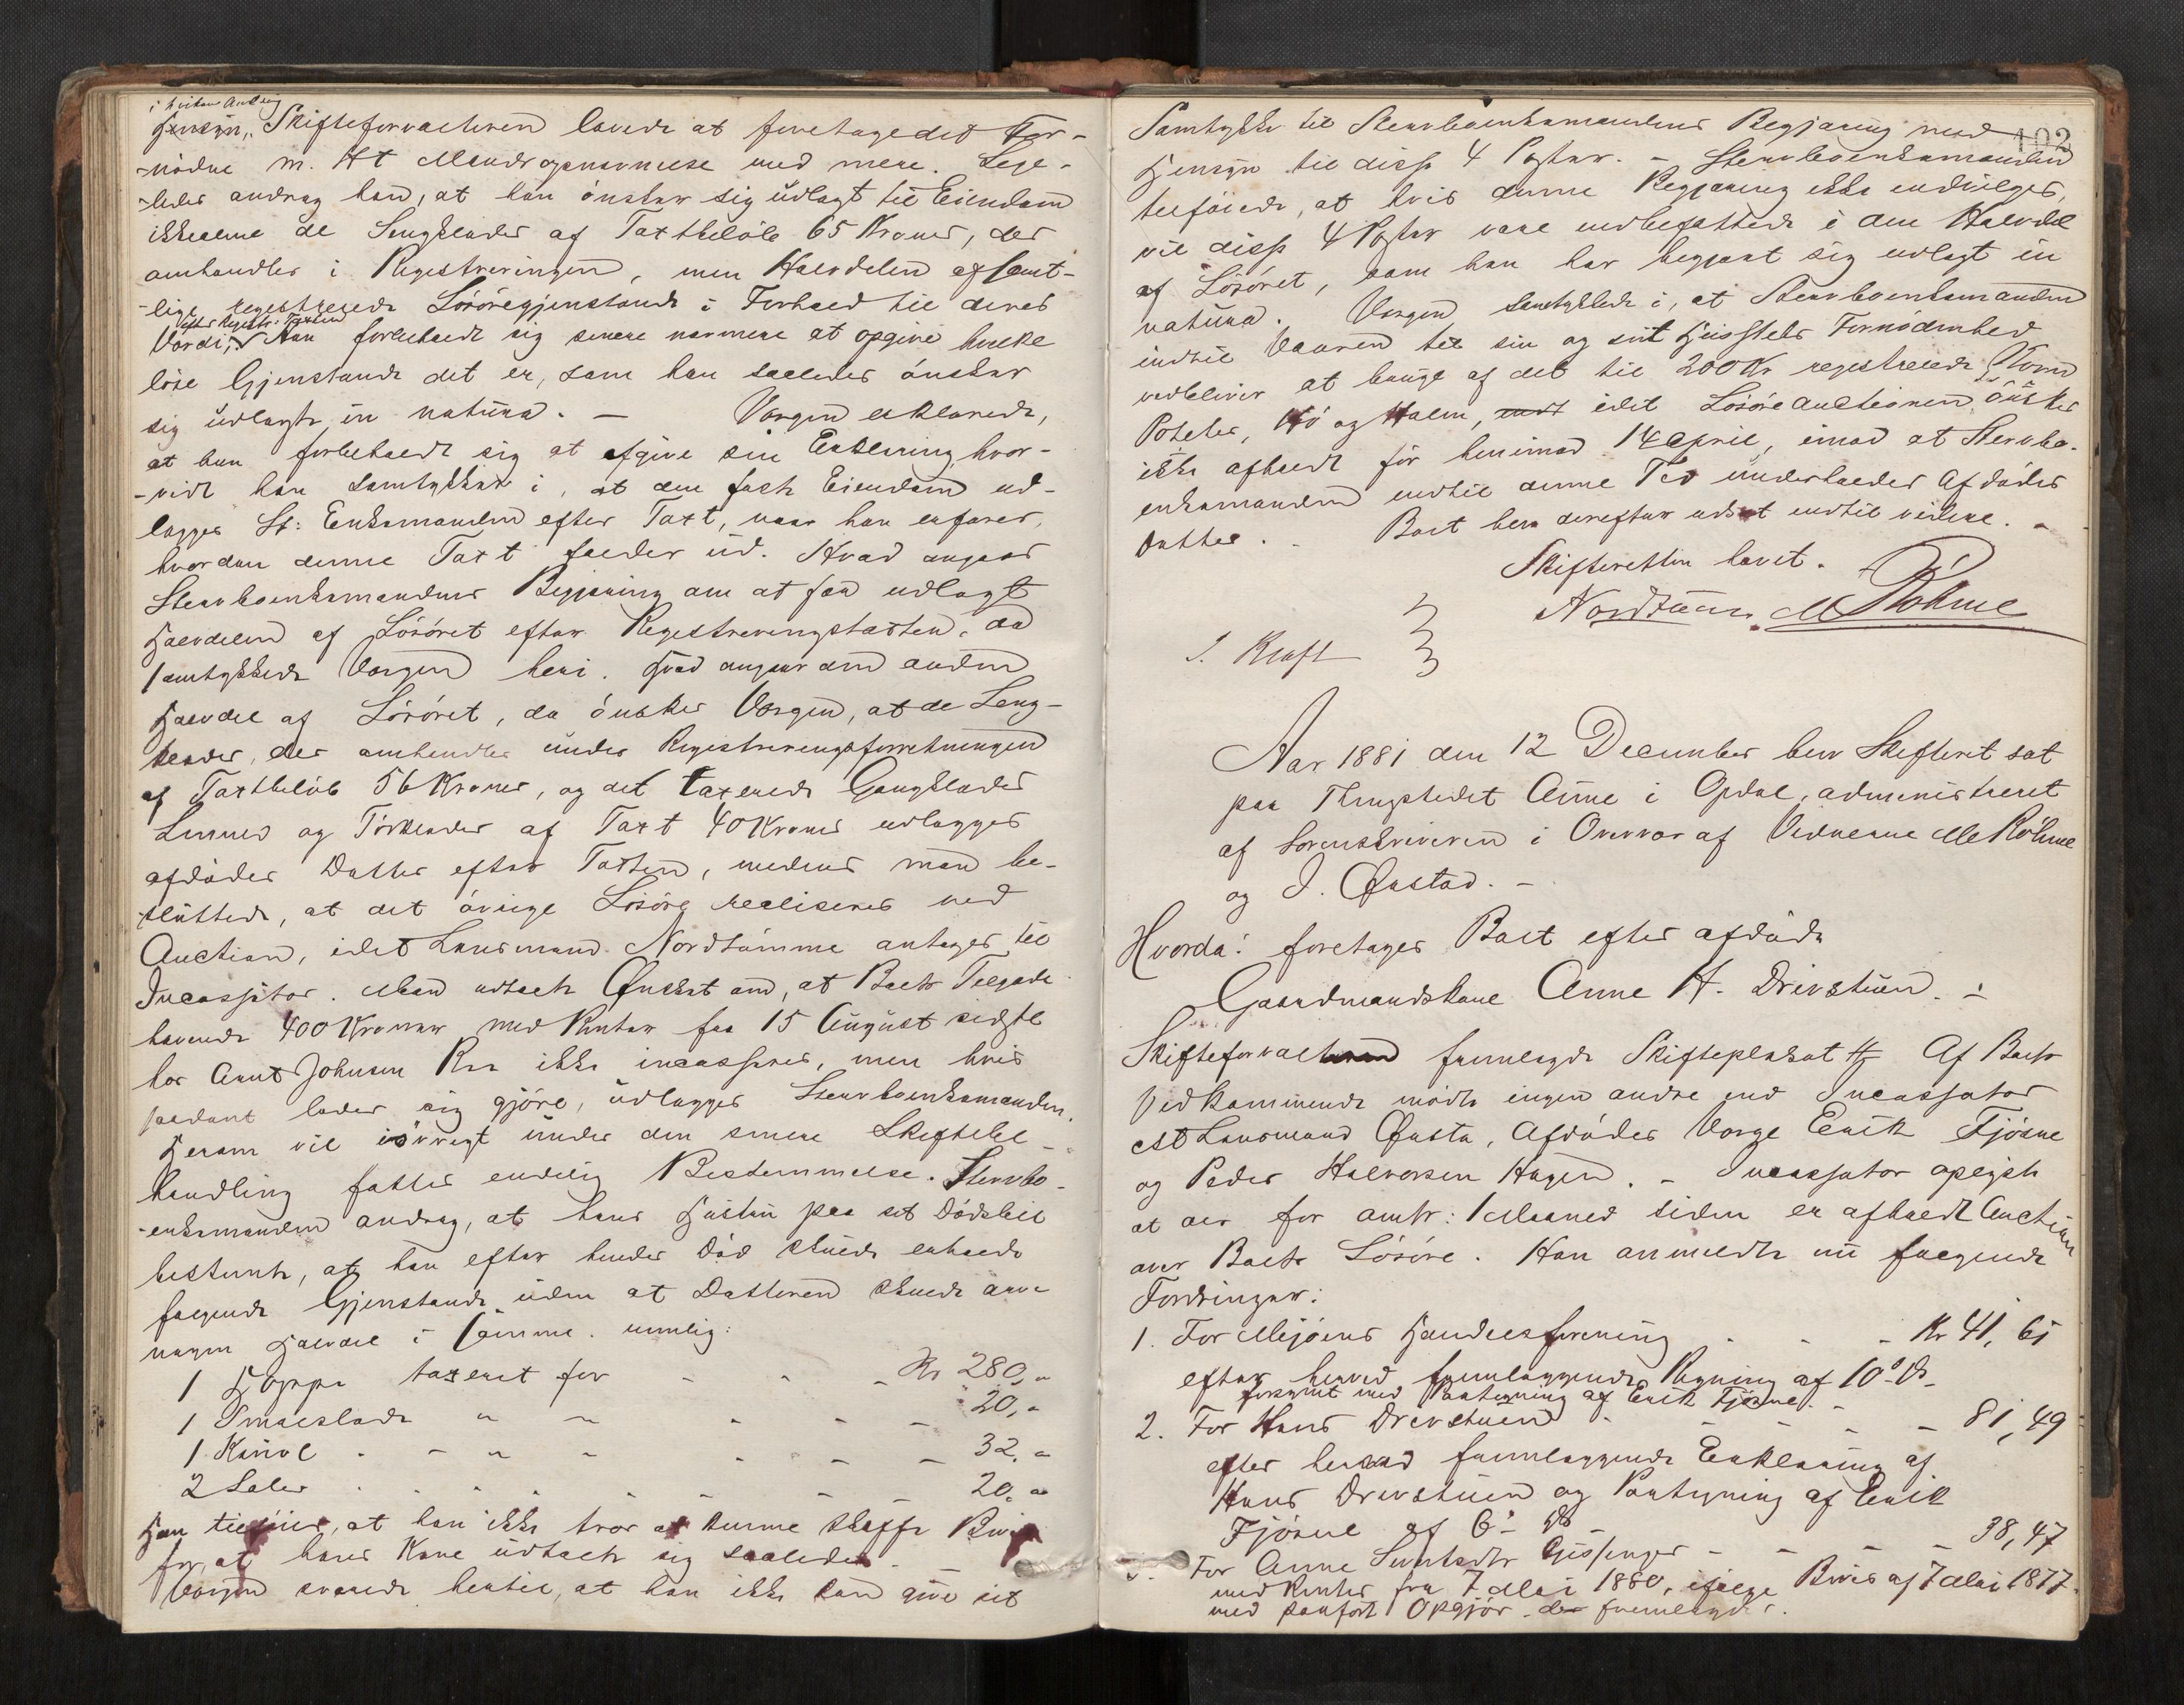 i hvilken Anledng
Hensyn, Skifteforvalteren lovede at foretage det For-
-nödne m. H t Mandsopnævnelse med mere. Lige-
-ledes androg han, at han önsker sig udlagt til Eiendom
ikkealene de Sengklæder af Taxtbelöb 65 Kroner, der
omhandles i Registreringen, men Halvdelen af samt-
-lige registrerede Lösöregjenstande i Forhold til deres
efter Registr: Taxten
Værdi, Han forbeholdt sig senere nærmere at opgive hvilke
löse Gjenstande det er, som han saaledes önsker
sig udlagte in natura. — Værgen erklærede,
at han forbeholdt sig at afgive sin Erklæring, hvor-
-vidt han samtykker i, at den faste Eiendom ud-
lægges St: Enkemanden efter Taxt, naar han erfarer,
hvordan denne Taxt falder ud. Hvad angaar
Stervboenkemandens Begjæring om at faa udlagt
Halvdelen af Lösöret efter Registreringstaxten, da
samtykkede Værgen heri. Hvad angaar den anden
Halvdel af Lösöret, da önsker Værgen, at de Seng-
klæder, der omhandles under Registreringsforretningen
af Taxtbelöb 56 Kroner, og det taxerede Gangklæder
Linned og Törklæder af Taxt 40 Kroner udlægges
afdödes Datter efter Taxten, medens man be-
-sluttede, at det övrige Lösöre realiseres ved
Auction, idet Lensmand Nordtömme antages til
Incassator. Man udtalte Önsket om, at Boets Tilgode-
havende 400 Kroner med Renter fra 15 August sidstl
hos Arnt Johnsen Ree ikke incasseres, men hvis
saadant lader sig gjöre, udlægges Stervboenkemanden.
Herom vil iövrigt under den senere Skiftebe-
handling fattes endelig Bestemmelse. Stervbo-
-enkemanden androg, at hans Hustru paa sit Dödsleie
bestemte, at han efter hendes Död skulde erholde
fölgende Gjenstande, uden at Datteren skulde arve
nogen Halvdel i samme, nemlig:
1 Hoppe taxeret for - - - Kr 280,-
1 Smalslæde " " - - - 20,-
1 Kariol - - " " - - - 32,-
2 Seler - - - - - - 20,-
Han tilföiede, at han ikke tror at kunne skaffe Bevis
for, at hans Kone udtalte sig saaledes. -
Værgen svarede hertil, at han ikke kan give sit
102
Samtykke til Stervboenkemandens Begjæring med
Hensyn til disse 4 Poster. - Stervboenkemanden
tilföiede, at hvis denne Begjæring ikke indvilges,
vil disse 4 Poster være indbefattede i den Halvdel
af Lösöret, som han har begjært sig udlagt in
natura. Værgen samtykkede i, at Stervboenkemanden
indtil Vaaren til sin og sit Huusstels Fornödenhed
vedbliver at bruge af det til 200 Kr registrerede Korn
Poteter, Hö og Halm, idet Lösöreauctionen önskes
ikke afholdt för henimod 14 April, imod at Stervbo-
enkemanden indtil denne Tid underholder Afdödes
Datter. - Boet blev derefter udsat indtil videre. -
Skifteretten hævet.
Nordtömme M Röhme
J. Kraft
Aar 1881 den 12 December blev Skifteret sat
paa Thingstedet Aune i Opdal, administreret
af Sorenskriveren i Overvær af Vidnerne M Röhme
og J. Ørstad. -
Hvorda: foretages Boet efter afdöde
Gaardmandskone Anne H. Drivstuen. -
Skifteforvalteren fremlagde Skifteplakat Af Boets
Vedkommende mödte ingen andre end Incassator
cst Lensmand Ørsta, Afdödes Værge Erik Fjösne
og Peder Halvorsen Hagen. - Incassator oplyste
at der for omtr: 1 Maaned siden er afholdt Auction
over Boets Lösöre. Han anmeldte nu fölgende
Fordringer:
1. For Mjöens Handelsforening - - - Kr 41, 61
efter herved fremlæggende Regning af 10' ds
forsynet med Paategning af Erik Fjösne. -
2. For Hans Drivstuen - - - - 81, 49
efter herved fremlæggende Erklæring af
Hans Drivstuen og Paategning af Erik
Fjösne af 6' ds
3. For Anne Sivertsdtr Gissinger - - - - 38, 47
med Renter fra 7 Mai 1880, ifölge Bevis af 7 Mai 1877
med paafört Opgjör fremlagdes.